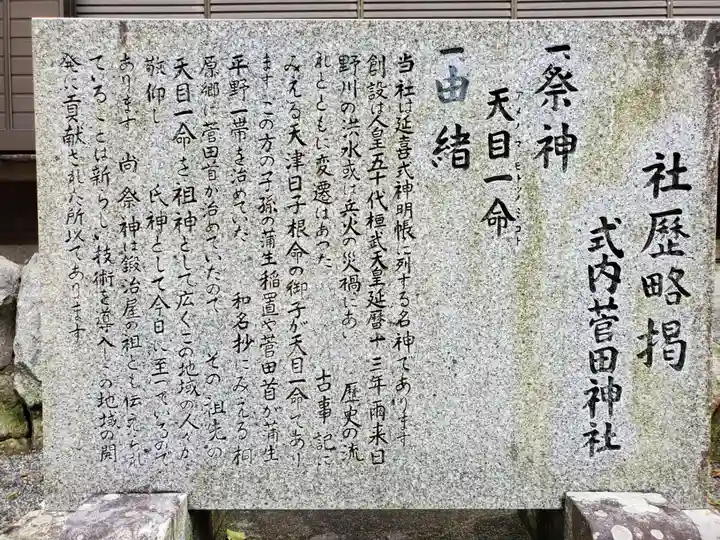 社歴略掲
式内菅田神社
一祭神
アメノマヒトツノミコト
天目一命
一由緒
当社は延喜式神明帳に列する名神であります
創設は人皇五十代桓武天皇延暦十三年爾来日
野川の洪水或は兵火の災禍にあい 歴史の流
れとともに変遷はあった 古事記に
みえる天津日子根命の御子が天目一命であり
ますこの方の子孫の蒲生稲置や菅田首が蒲生
平野一帯を治めていた 和名抄にみえる桐
原郷は菅田首が治めていたので その祖先の
天目一命を祖神として広くこの地域の人々が
敬仰し 氏神として今日に至っているので
あります 尚祭神は鍛冶屋の祖とも伝えられ
ていることは新らしい技術を導入しこの地域の開
発に貢献された所以であります